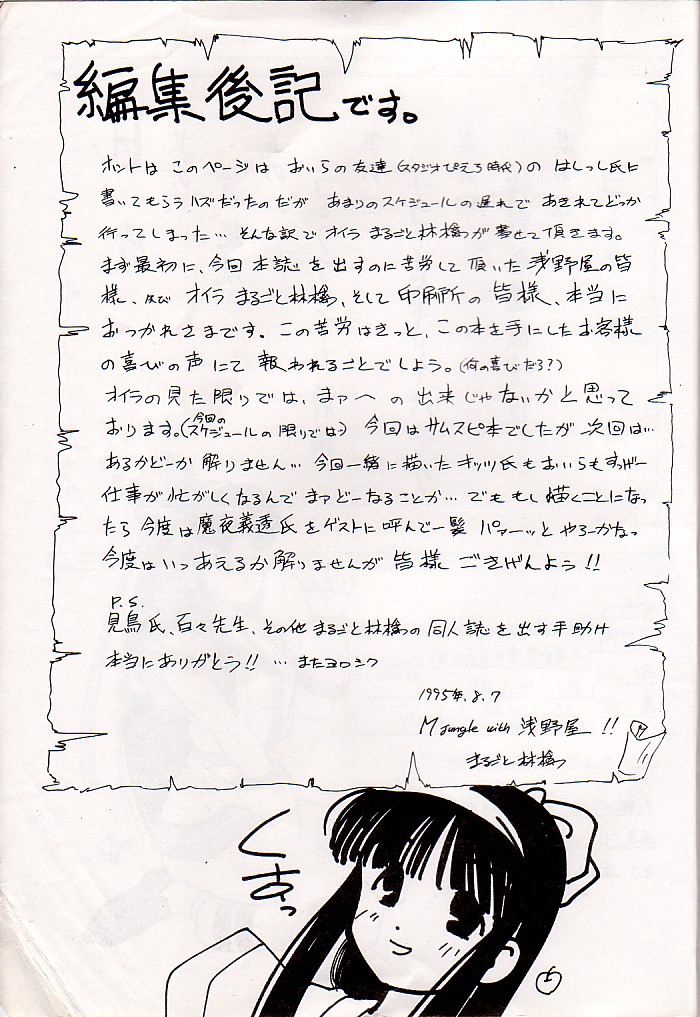 編集後記です。
ホントは このページは おいらの友達(スタジオぴえろ時代)の はしっし氏に
書いてもらうハズだったのだが あまりのスケジュールの遅れで あきれてどっか
行ってしまった… そんな訳で オイラ まるごと林檎っが書せて頂きます。
まず最初に、今回本誌を出すのに苦労して頂いた浅野屋の皆
様、及び オイラ まるごと林檎っ、そして 印刷所の皆様、本当に
おつかれさまです。この苦労はきっと、この本を手にしたお客様
の喜びの声にて 報われることでしょう。(何の喜びだろ?)
オイラの見た限りでは、まァへの出来じゃないかと思って
おります。(今回のスケジュールの限りでは) 今回はサムスピ本でしたが 次回は…
あるかどーか解りません… 今回一緒に描いたキッツ氏もおいらもすっげー
仕事が忙がしくなるんで まァどーなることか… でももし描くことになっ
たら 今度は魔夜義透氏をゲストに呼んで一髪 パァーッと やろーかなっ
今度はいつあえるか解りませんが 皆様 ごきげんよう!!
P.S.
見鳥氏、百々先生、その他 まるごと林檎っの同人誌を出す手助け
本当にありがとう!! … またヨロシク
1995年.8.7
M Jungle with 浅野屋 !!
まるごと林檎っ